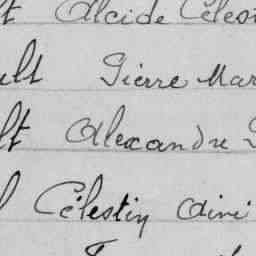 lt Alcide Célest
ult Pierre Mar
lt Alexandre
l Célestin Aimé